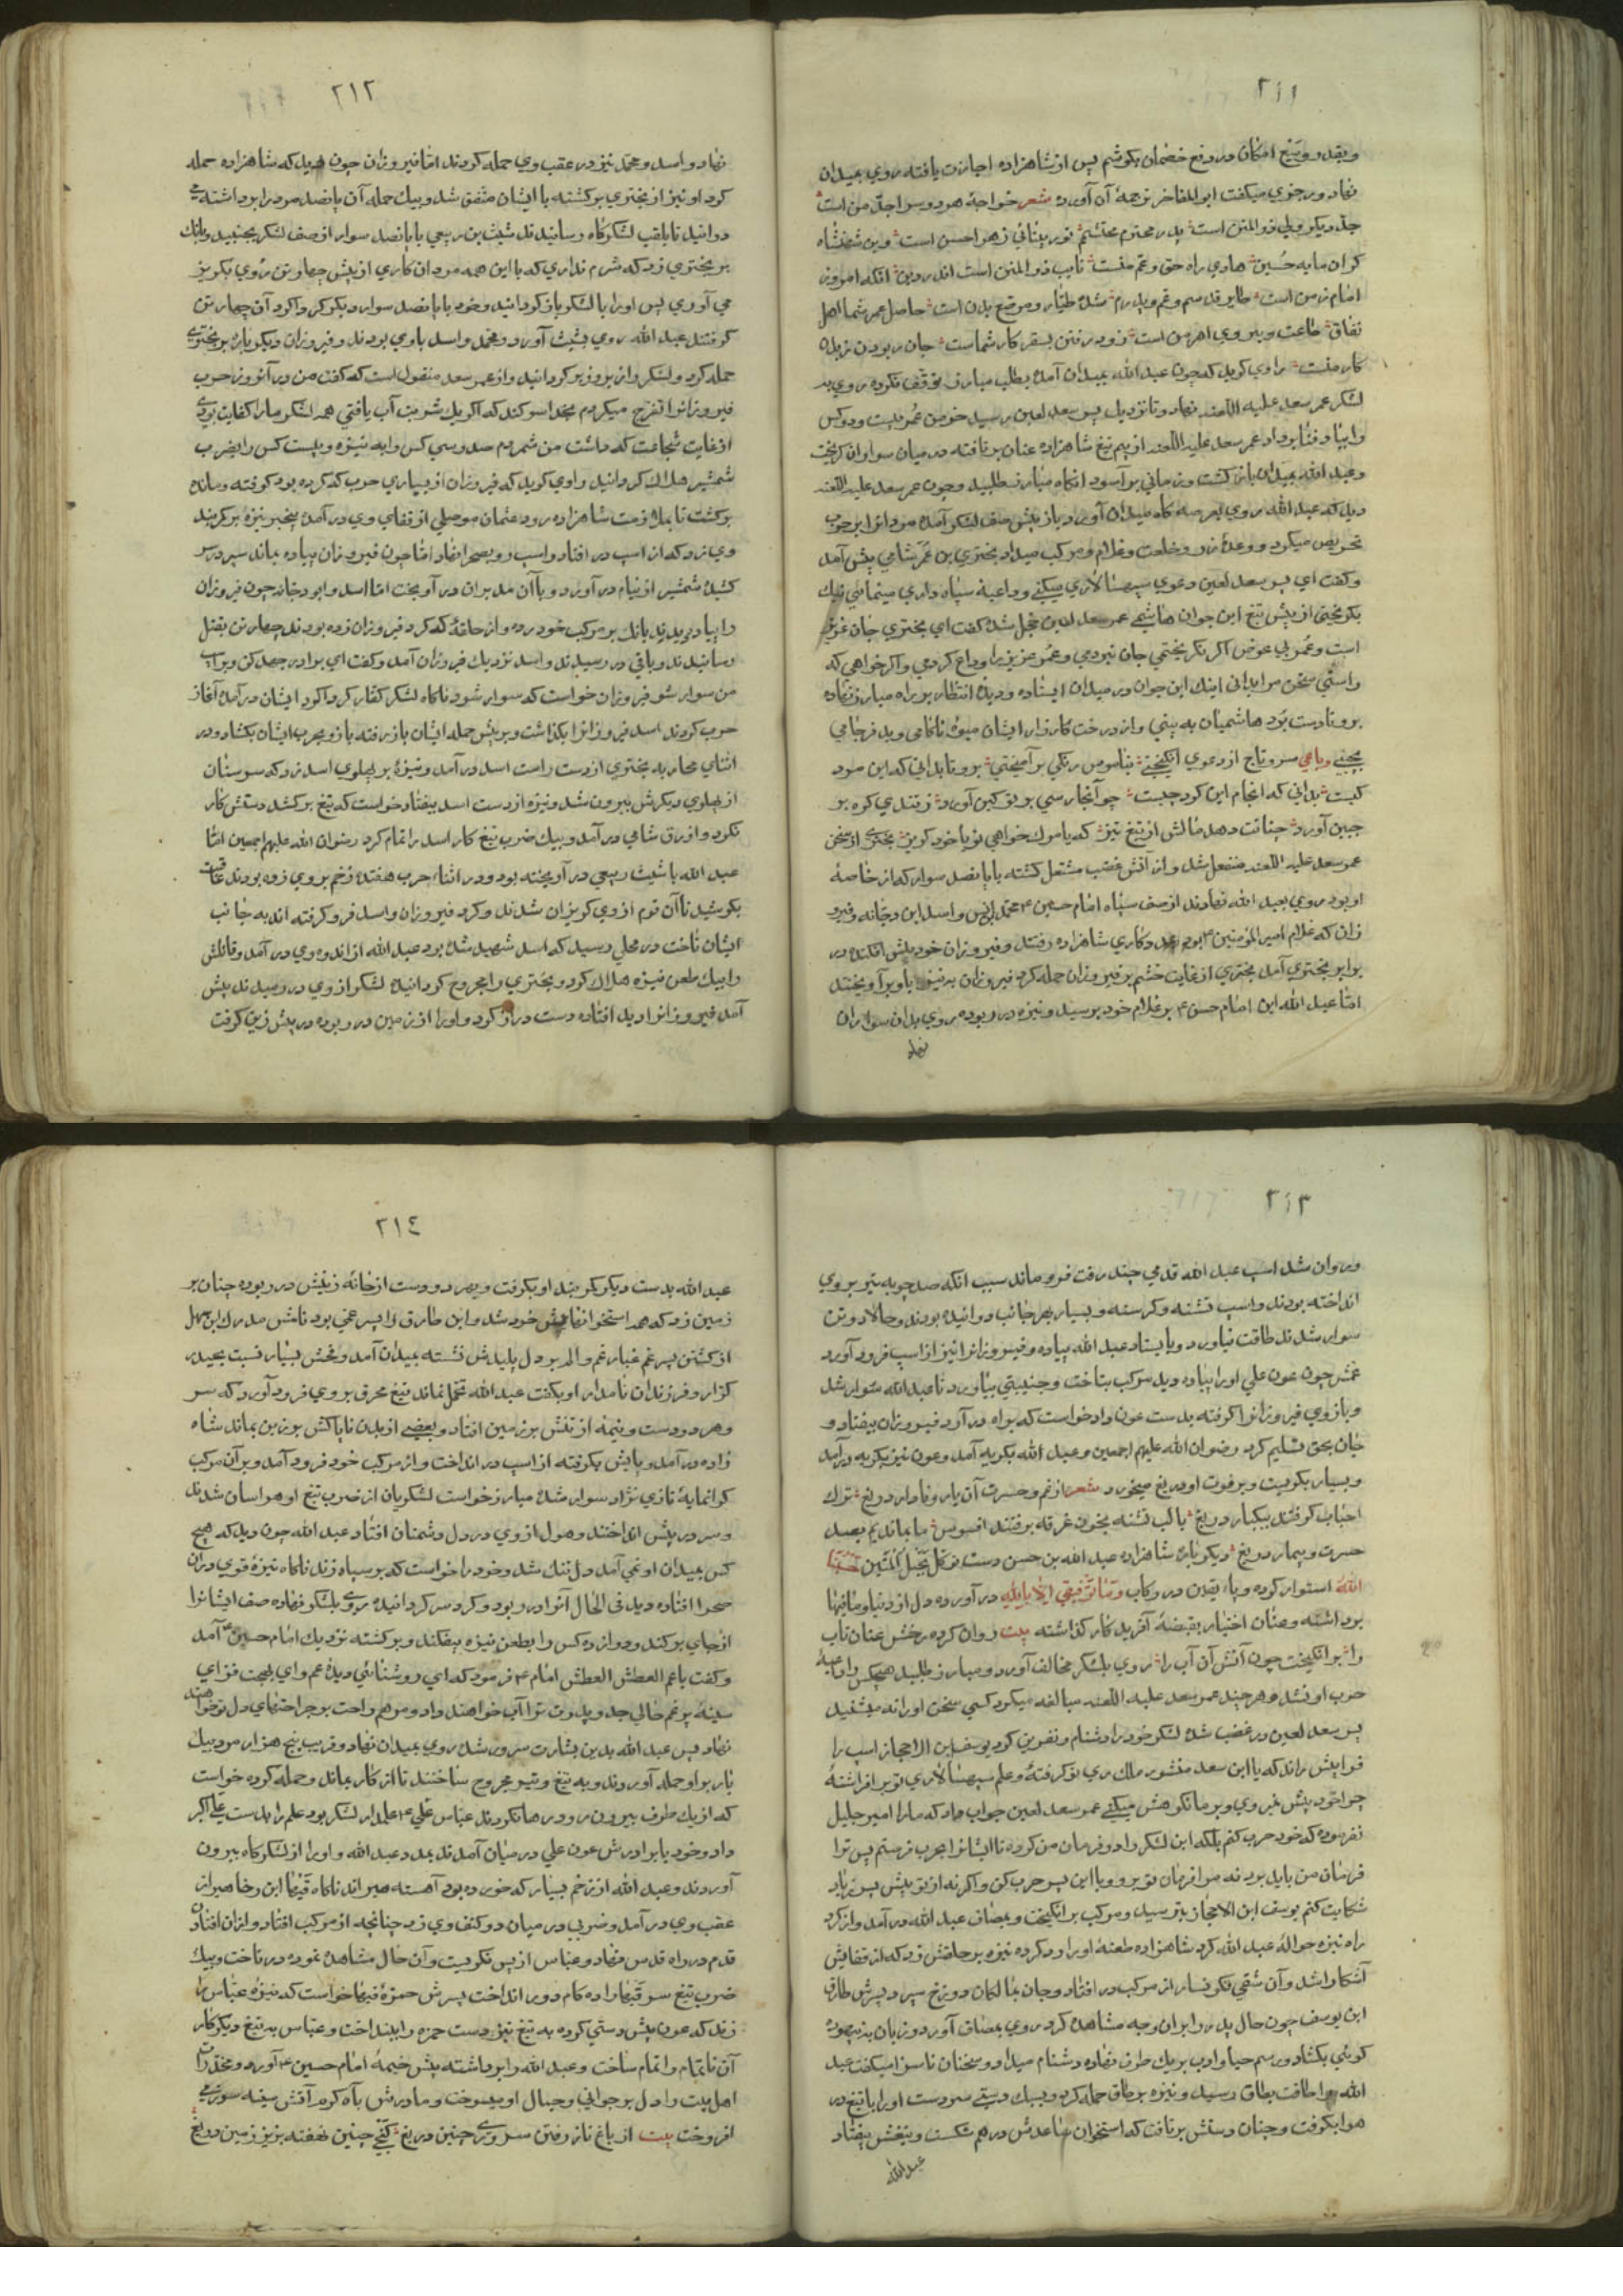 ٢١١
وبقدر وسع امکان در دفع خصمان بکوشم پس از شاهزاده اجازت یافته روی بمیدان
نهاد ورجزی میکفت ابو المفاخر ترجمهٔ آن آورده شعر خواجهٔ هر دو سرا جدّ من است
کار منست راوی کوید که چون عبد الله بمیدان آمد و بطلب مبارز توقف نکرده روی به
لشکر عمر سعد علیه اللعنه نهاد و تا نزدیک پسر سعد لعین رسید خرمن عمر بیست ودو کس
را بباد فنا برداد عمر سعد علیه اللعنه از بیم تیغ شاهزاده عنان برتافته در میان سواران کریخت
وعبد الله بمیدان باز کشت وزمانی برآسود انکاه مبارز طلبید وچون عمر سعد علیه اللعنه
دید که عبد الله روی بعرصه کاه میدان آورد باز پیش صف لشکر آمده مردانرا برحرب
تحریص میکرد ووعدهٔ زر وخلعت وغلام ومرکب میداد بختری بن عمر شامی پیش آمد
وکفت ای پسر سعد لعین دعوی سپهسالاری میکنی وداعیهٔ سپاه داری مینمائی نیک
بکریختی از پیش تیغ این جوان هاشمی عمر سعد لعین خجل شد کفت ای بختری جان عزیز
است وعمر بی عوض اکر نکریختمی جان نبردمی وعمر عزیز را وداع کردمی واکر خواهی که
راستی سخن مرا بدانی اینک این جوان در میدان ایستاده ودیدهٔ انتظار بر راه مبارز نهاده
برو تا دست برد هاشمیان به بینی واز درخت کارزار ایشان میوهٔ ناکامی وبد فرجامی
عمر سعد علیه اللعنه منفعل شد واز آتش غضب مشتعل کشته با پانصد سوار که از خاصهٔ
او بود روی بعبد الله نهادند از صف سپاه امام حسین ع محمد انس واسد ابن دجانه وفیرو
زان که غلام امیر المؤمنین ع بود بمدد کاری شاهزاده رفتند وفیروزان خود پیش افکند در
برابر بختری آمد بختری از غایت خشم بر فیروزان حمله کرد فیروزان به نیزه با وی برآویختند
امّا عبد الله ابن امام حسن ع بر غلام خود برسید ونیزه در ربوده روی بدان سواران
نهاد
٢١٢
نهاد واسد ومحمّد نیز در عقب وی حمله کردند امّا فیروزان چون دید که شاهزاده حمله
کرد او نیز از بختری برکشته با ایشان متفق شد وبیک حمله آن پانصد مرد را برداشته می
دوانید تا بقلب لشکرکاه رسانیدند شیث بن ربیعی با پانصد سوار از صف لشکر بجنبید وبانک
بر بختری زد که شرم نداری که با این همه مردان کاری از پیش چهار تن روی بکریز
می آوری پس او را با لشکر باز کردانید وخود با پانصد سوار دیکر کرد آن چهار تن
کرفتند عبد الله روی بشیث آورد ومحمد واسد با وی بودند وفیروزان دیکر باره بر بختری
حمله کرد ولشکر را زیر وزبر کردانید واز عمر سعد منقول است که کفت من در آنروز حرب
فیروزانرا تفرج میکردم بخدا سوکند که اکر یک شربت آب یافتی همه لشکر ما را کفایت بودی
از غایت شجاعت که داشت من شمردم صد وسی کس را به نیزه وبیست کس را بضرب
شمشیر هلاک کردانید راوی کوید که فیروزان از بسیاری حرب که کرده بود کوفته ومانده
برکشت تا بملازمت شاهزاده رود عثمان موصلی از قفای وی در آمده بیخبر نیزه بر کمربند
وی زد که از اسب در افتاد واسب رو بصحرا نهاد امّا چون فیروزان پیاده بماند سپر در سر
کشید شمشیر از نیام در آورد وبا آن مدبران در آویخت امّا اسد وابو دجانه چون فیروزان
را پیاده دیدند بانک بر مرکب خود زده واز حلقهٔ که کرد فیروزان زده بودند چهار تن بقتل
رسانیدند وباقی در رمیدند واسد نزدیک فیروزان آمد وکفت ای برادر جهد کن وبر اسب
من سوار شو فیروزان خواست که سوار شود ناکاه لشکر کفار کرداکرد ایشان در آمده آغاز
حرب کردند اسد فیروزانرا بکذاشت وبر پیش حمله ایشان باز رفته بازو بحرب ایشان بکشاد ودر
اثنای محاربه بختری از دست راست اسد در آمد ونیزهٔ بر پهلوی اسد زد که سر سنان
از پهلوی دیکرش بیرون شد ونیزه از دست اسد بیفتاد خواست که تیغ برکشد دستش کار
نکرد وازرق شامی در آمد وبیک ضرب تیغ کار اسد را تمام کرد رضوان الله علیهم اجمعین امّا
عبد الله با شیث ربیعی در آویخته بود ودر اثناء حرب هفتده زخم بر وی زده بودند
بکوشید تا آن قوم از وی کریزان شدند وکرد فیروزان واسد فرو کرفته اند به جانب
ایشان تاخت در محلی رسید که اسد شهید شده بود عبد الله از اندوه وی در آمد وقاتلش
را بیک طعن نیزه هلاک کرد وبختری را مجروح کردانید لشکر از وی در رمیدند پیش
آمد فیروزانرا دید افتاده دست دراز کرد واو را از زمین در ربوده در پیش زین کرفت
٢١٣
وروان شد اسب عبد الله قدمی چند رفت فرو ماند سبب انکه صد چوبه تیر بر وی
انداخته بودند واسب تشنه وکرسنه وبسیار بهر جانب دوانیده بودند وحالا دو تن
سوار شدند طاقت نیاورد وبایستاد عبد الله پیاده وفیروزانرا نیز از اسب فرود آورد
عمش چون عون علی او را پیاده دید مرکب بتاخت وجنیبتی بیاورد تا عبد الله سوار شد
وبازوی فیروزانرا کرفته بدست عون داد خواست که براه در آرد فیروزان بیفتاد و
جان بحق تسلیم کرد رضوان الله علیهم اجمعین وعبد الله بکریه آمد وعون نیز بکریه در آمد
وبسیار بکریست وبر فوت او دریغ میخورد شعر از غم وحسرت آن یار وفادار دریغ ترک
احباب کرفتند بیکبار دریغ با لب تشنه بخون غرقه برفتند افسوس ما بماندیم بصد
حسرت وبیمار دریغ دیکر باره شاهزاده عبد الله بن حسن دست توکل بحبل المتین حسبنا
الله استوار کرده وپاء یقین در رکاب وما توفیقی الا بالله در آورده دل از دنیا وما فیها
برداشته وعنان اختیار بقبضهٔ آفریدکار کذاشته بیت روان کرده رخش عنان تاب
را برانکیخت چون آتش آن آب را روی بلشکر مخالف آورد ومبارز طلبید هیچکس را داعیهٔ
حرب او نشد هر چند عمر سعد علیه اللعنه مبالغه میکرد کسی سخن او را نه میشنید
پسر سعد لعین در غضب شده لشکر خود را دشنام ونفرین کرد یوسف ابن الاحجاز اسب را
فرا پیش راند که یا ابن سعد منشور ملک ری تو کرفتهٔ وعلم سپهسالاری تو برافراشتهٔ
چرا خود پیش نمیروی وبر ما نکوهش میکنی عمر سعد لعین جواب داد که ما را امیر جلیل
نفرموده که خود حرب کنم بلکه این لشکر را در فرمان من کرده تا ایشانرا بحرب فرستم پس ترا
فرمان من باید برد نه مرا فرمان تو برو وبا این پسر حرب کن واکر نه از تو پیش پسر زیاد
شکایت کنم یوسف ابن الاحجاز بترسید ومرکب برانکیخت وبمصاف عبد الله در آمد واز کرد
راه نیزه حوالهٔ عبد الله کرد شاهزاده طعنهٔ او را رد کرده نیزه بر حلقش زد که از قفایش
آشکارا شد وآن شقی نکونسار از مرکب در افتاد وجان بمالکان دوزخ سپرد پسرش طارق
ابن یوسف چون حال پدر را بران وجه مشاهده کرد روی بمصاف آورد وزبان به بیهوده
کوئی بکشاد ورسم حیا وادب بر یک طرف نهاده دشنام میداد وسخنان ناسزا میکفت عبد
الله را طاقت بطاق رسید ونیزه بر طاق حمله کرد وبسبک دستی سر دست او را با تیغ در
هوا بکرفت وچنان دستش برتافت که استخوان ساعدش در هم شکست وتیغش بیفتاد
عبد الله
٢١٤
عبد الله بدست دیکر کمربند او بکرفت وبهر دو دست از خانهٔ زینش در ربوده چنان بر
زمین زد که همه استخوانهایش خورد شد وابن طارق را پسر عمی بود نامش مدرک ابن سهل
از کشتن پسر عم غبار غم والم بر دل پلیدش نشسته بمیدان آمد وفحش بسیار نسبت بحیدر
کرّار وفرزندان نامدار او بکفت عبد الله تحمّل نماند تیغ محرق بر وی فرود آورد که سر
وهر دو دست ونیمهٔ از تنش بر زمین افتاد وبعضی از بدن ناپاکش بر زین بماند شاه
زاده در آمد وپایش بکرفته از اسب در انداخت واز مرکب خود فرود آمد وبر آن مرکب
کرانمایهٔ تازی نژاد سوار شده مبارز خواست لشکریان از ضرب تیغ او هراسان شدند
وسر در پیش انداختند وهول از وی در دل دشمنان افتاد عبد الله چون دید که هیچ
کس بمیدان او نمی آمد دل تنک شد وخود را خواست که بر سپاه زند ناکاه نیزهٔ قوی دران
صحرا افتاده دید فی الحال آنرا در ربود وکرد سر کردانیده روی بلشکر نهاده صف ایشانرا
از جای برکند ودوازده کس را بطعن نیزه بیفکند وبرکشته نزدیک امام حسین ع آمد
وکفت یا عم العطش العطش امام ع فرمود که ای روشنائی دیدهٔ عم وای بهجت فزای
سینهٔ پر غم حالی جد وپدرت ترا آب خواهند داد ومرهم راحت بر جراحتهای دل تو خواهند
نهاد پس عبد الله بدین بشارت مسرور شد روی بمیدان نهاد وقریب پنج هزار مرد بیک
بار بر او حمله آوردند وبه تیغ وتیر مجروح ساختند تا از کار بماند وحمله کرده خواست
که از یک طرف بیرون رود رها نکردند عباس علی ع علمدار لشکر بود علم را بدست علی اکبر
داد وخود با برادرش عون علی در میان آمدند بمدد عبد الله واو را از لشکرکاه بیرون
آوردند وعبد الله از زخم بسیار که خورده بود آهسته میراند ناکاه
عقب وی در آمد وضربی در میان دو کتف وی زد چنانچه از مرکب افتاد
قدم در راه قدس نهاد وعباس از پس نکریست وآن حال مشاهده نموده در تاخت وبیک
ضرب تیغ سر را ده کام دور انداخت پسرش حمزه خواست که نیزهٔ عباس را
زند که عون پیش دستی کرده به تیغ تیز دست حمزه را بینداخت وعباس به تیغ دیکر کار
آن ناتمام را تمام ساخت وعبد الله را برداشته پیش خیمهٔ امام حسین ع آورد
اهل بیت را دل بر جوانی وجمال او میسوخت ومادرش بآه کرم آتش سینه سوزی
افروخت بیت از باغ ناز رفتن سروی چنین دریغ کنجی چنین نهفته بزیر زمین دریغ